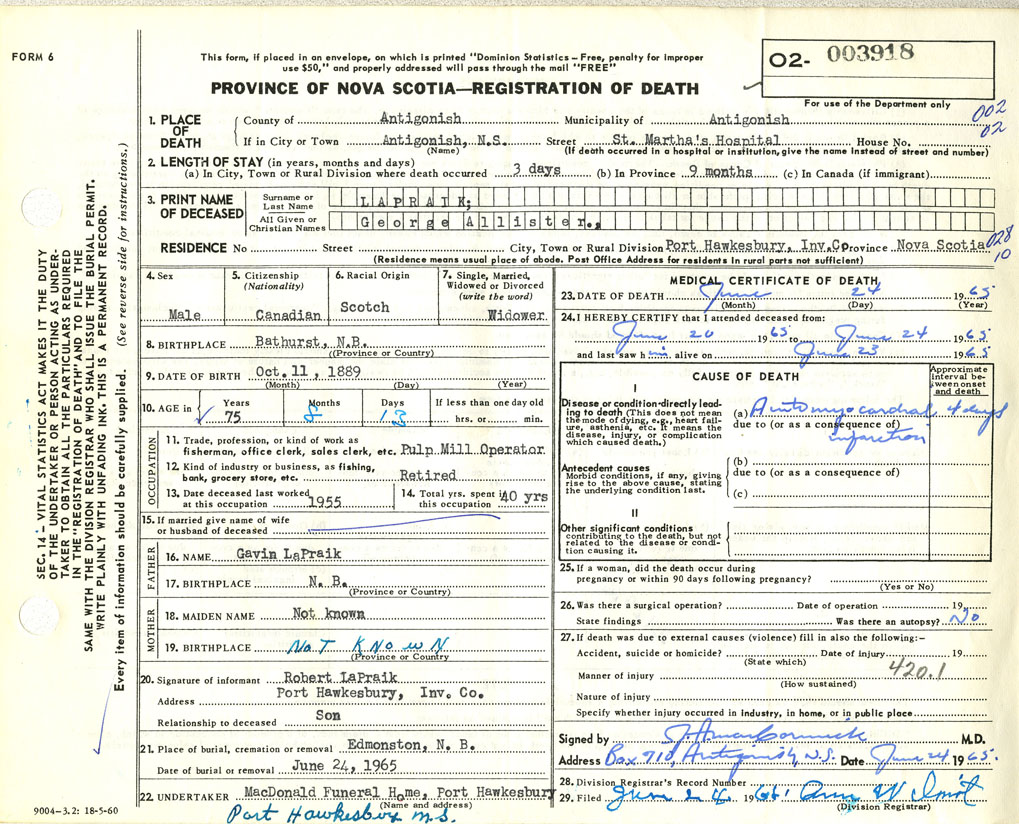 FORM 6
This form, if placed in an envelope, on which is printed "Dominion Statistics – Free, penalty for improper
use $50," and properly addressed will pass through the mail "FREE"
PROVINCE OF NOVA SCOTIA—REGISTRATION OF DEATH
O2- 003918
For use of the Department only
002
02
1. PLACE OF DEATH
County of Antigonish Municipality of Antigonish
If in City or Town Antigonish, N.S. Street St. Martha's Hospital House No.
(Name) (If death occurred in a hospital or institution, give the name instead of street and number)
2. LENGTH OF STAY (in years, months and days)
(a) In City, Town or Rural Division where death occurred 3 days (b) In Province 9 months (c) In Canada (if immigrant)
3. PRINT NAME OF DECEASED
Surname or Last Name LAPRAIK;
All Given or Christian Names George Allister.,
RESIDENCE No Street City, Town or Rural Division Port Hawkesbury, Inv.Co Province Nova Scotia
028
10
(Residence means usual place of abode. Post Office Address for residents in rural parts not sufficient)
4. Sex
Male
5. Citizenship
(Nationality)
Canadian
6. Racial Origin
Scotch
7. Single, Married,
Widowed or Divorced
(write the word)
Widower
8. BIRTHPLACE Bathurst, N.B.
(Province or Country)
9. DATE OF BIRTH Oct. 11, 1889
(Month) (Day) (Year)
10. AGE in Years Months Days If less than one day old
75 8 13 hrs. or min.
OCCUPATION
11. Trade, profession, or kind of work as
fisherman, office clerk, sales clerk, etc. Pulp Mill Operator
12. Kind of industry or business, as fishing,
bank, grocery store, etc. Retired
13. Date deceased last worked
at this occupation 1955
14. Total yrs. spent in
this occupation 40 yrs
15. If married give name of wife
or husband of deceased
FATHER
16. NAME Gavin LaPraik
17. BIRTHPLACE N. B.
(Province or Country)
MOTHER
18. MAIDEN NAME Not known
19. BIRTHPLACE NoT KNowN
(Province or Country
20. Signature of informant Robert LaPraik
Address Port Hawkesbury, Inv. Co.
Relationship to deceased Son
21. Place of burial, cremation or removal Edmonston, N. B.
Date of burial or removal June 24, 1965
22. UNDERTAKER MacDonald Funeral Home, Port Hawkesbury
(Name and address)
Port Hawkesbury N.S.
9004-3.2: 18-5-60
MEDICAL CERTIFICATE OF DEATH
23. DATE OF DEATH June 24 1965
(Month) (Day) (Year)
24. I HEREBY CERTIFY that I attended deceased from:
June 20 1965 to June 24 1965
and last saw him alive on June 23 1965
CAUSE OF DEATH
Approximate
interval be-
tween onset
and death
I
Disease or condition directly lead-
ing to death (This does not mean
the mode of dying, e.g., heart fail-
ure, asthenia, etc. It means the
disease, injury, or complication
which caused death.)
(a) myocardial 4 days
due to (or as a consequence of)
infarction
Antecedent causes
Morbid conditions, if any, giving
rise to the above cause, stating
the underlying condition last.
(b)
due to (or as a consequence of)
(c)
II
Other significant conditions
contributing to the death, but not
related to the disease or condi-
tion causing it.
25. If a woman, did the death occur during
pregnancy or within 90 days following pregnancy?
(Yes or No)
26. Was there a surgical operation? Date of operation 19
State findings Was there an autopsy? No
27. If death was due to external causes (violence) fill in also the following:–
Accident, suicide or homicide? Date of injury 19
(State which)
Manner of injury 420.1
(How sustained)
Nature of injury
Specify whether injury occurred in industry, in home, or in public place
Signed by M.D.
Address Box 710, Antigonish, N.S. Date June 24 1965
28. Division Registrar's Record Number
29. Filed June 24 196
(Division Registrar)
SEC. 14 - VITAL STATISTICS ACT MAKES IT THE DUTY
OF THE UNDERTAKER OR PERSON ACTING AS UNDER-
TAKER TO OBTAIN ALL THE PARTICULARS REQUIRED
IN THE "REGISTRATION OF DEATH" AND TO FILE THE
SAME WITH THE DIVISION REGISTRAR WHO SHALL ISSUE THE BURIAL PERMIT.
WRITE PLAINLY WITH UNFADING INK. THIS IS A PERMANENT RECORD.
Every item of information should be carefully supplied. (See reverse side for instructions.)